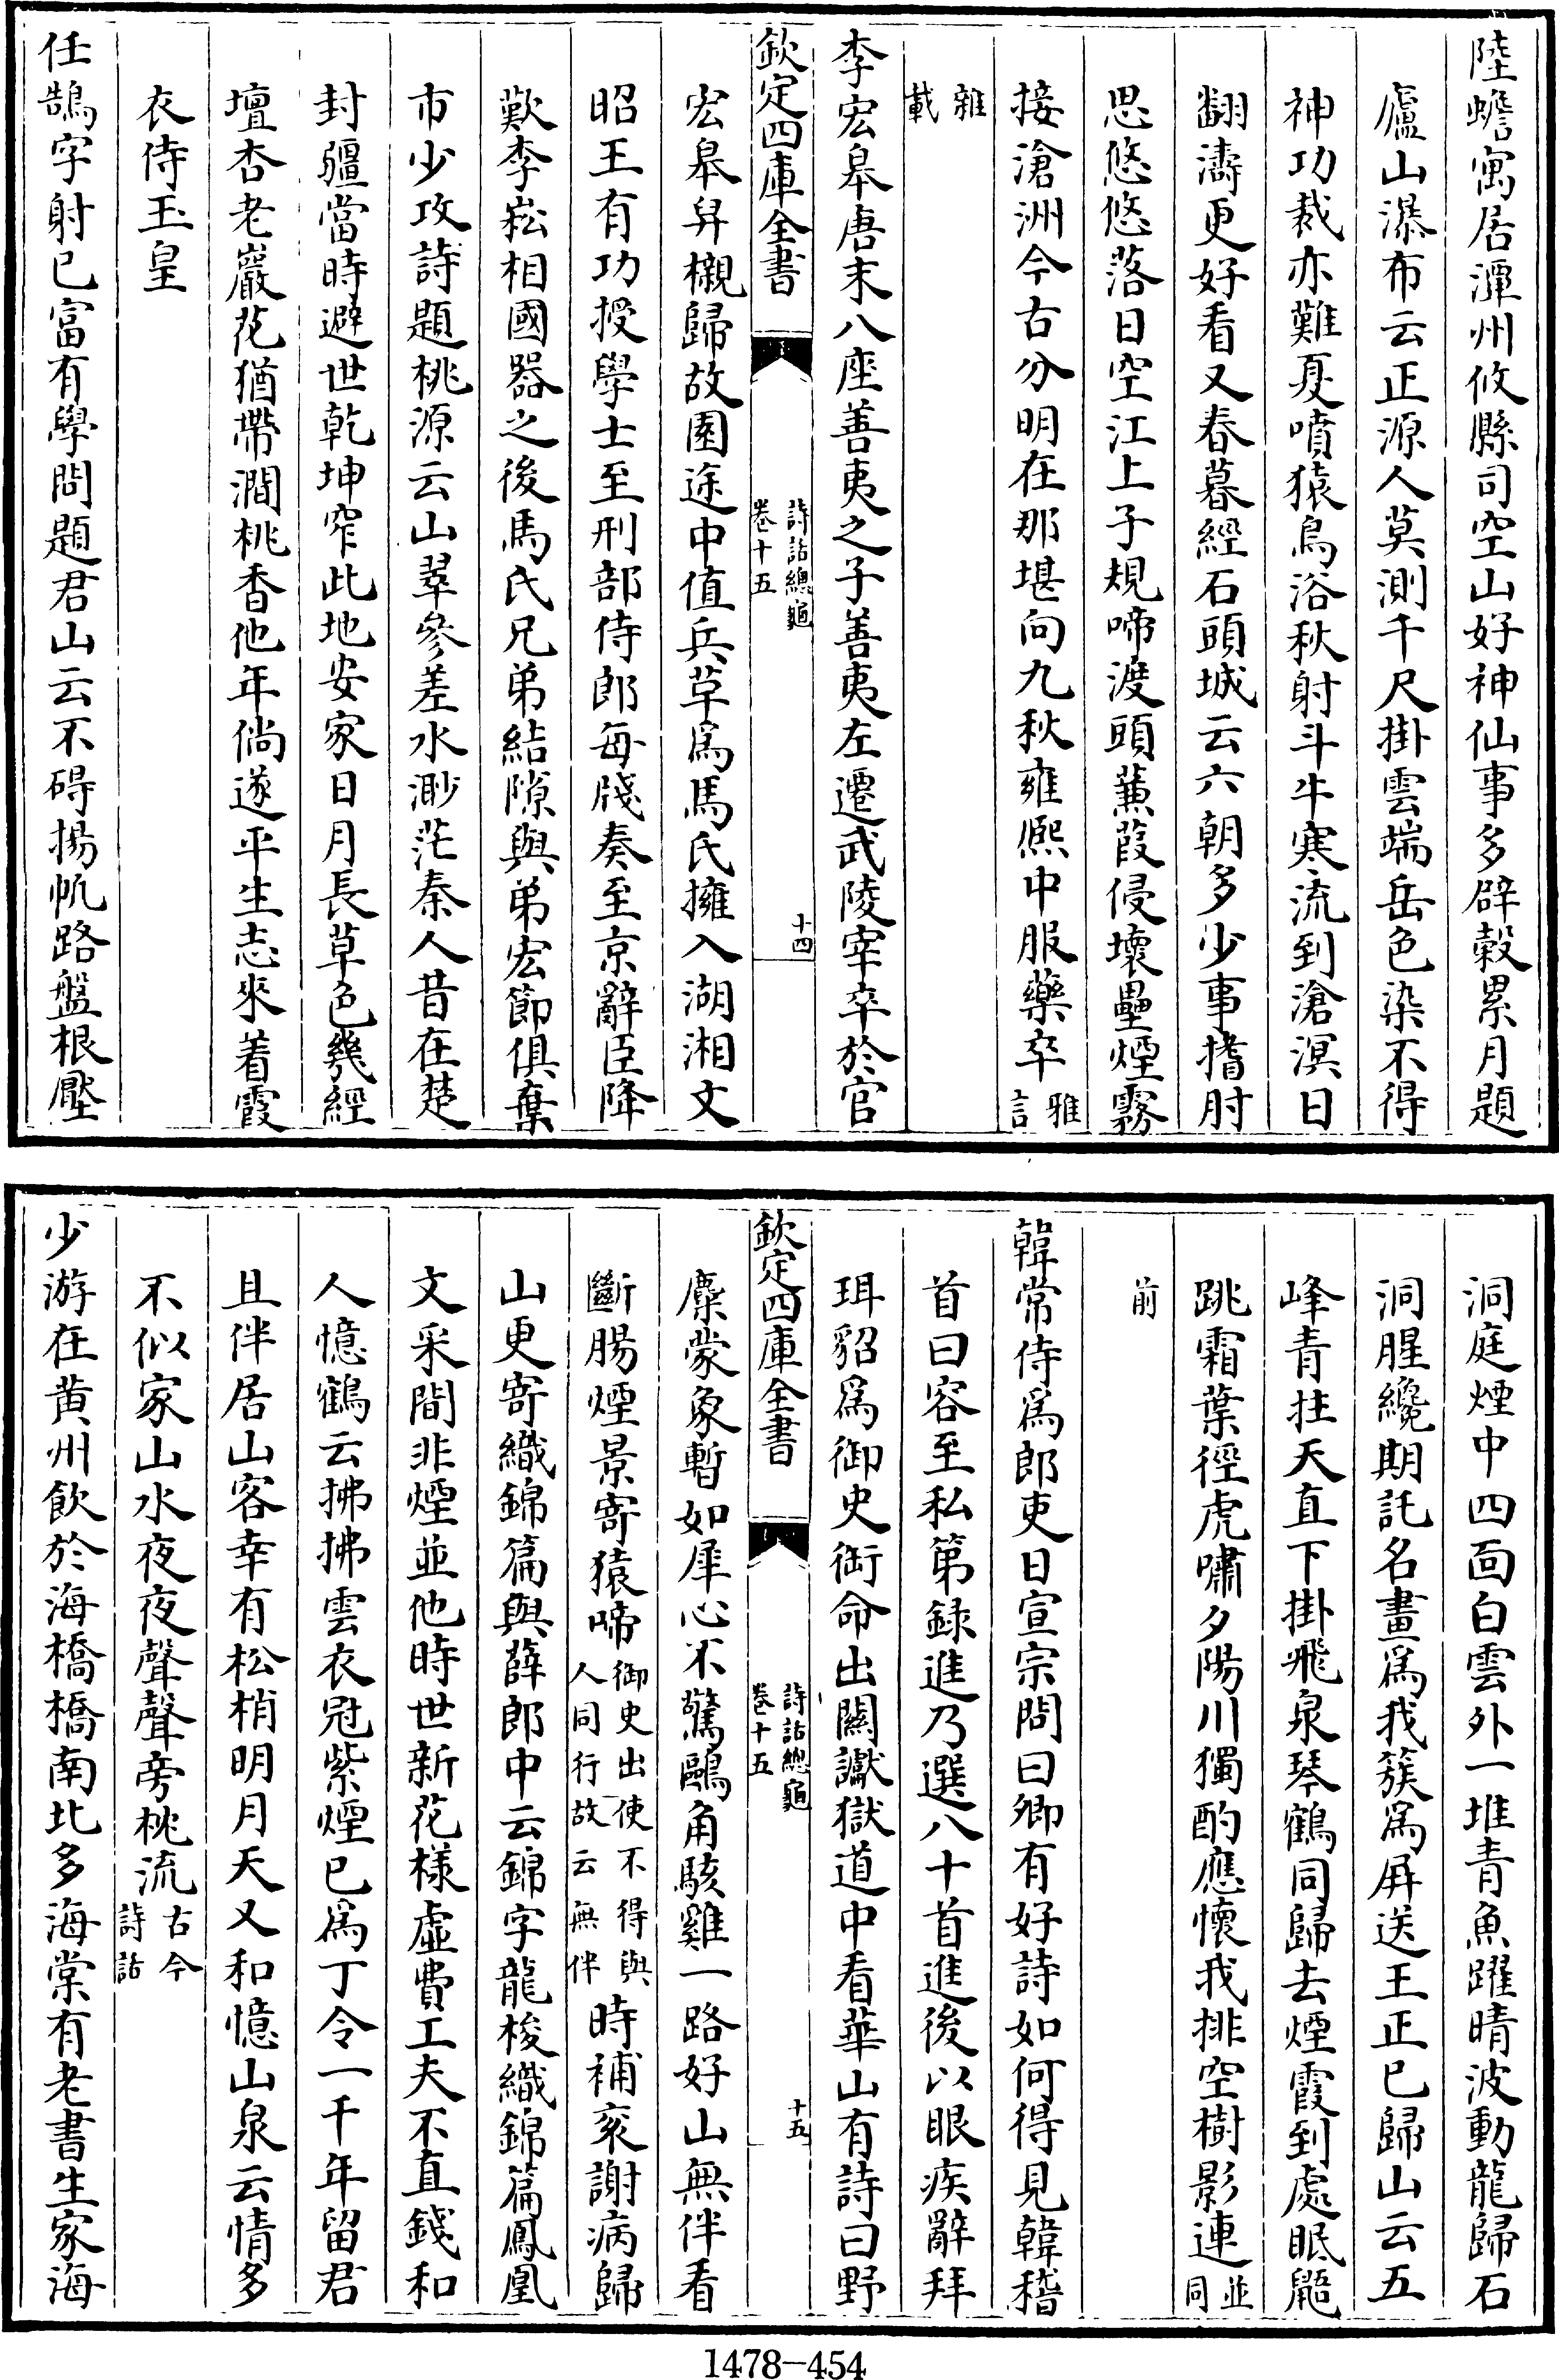 陸蟾寓居潭州攸縣司空山好神仙事多辟榖累月題
廬山瀑布云正源人莫測千尺掛雲端岳色染不得
神功裁亦難夏噴猿鳥浴秋射斗牛寒流到滄溟日
翻濤更好看又春暮經石頭城云六朝多少事搘肘
思悠悠落日空江上子規啼渡頭蒹葭侵壞壘煙霧
接滄洲今古分明在那堪向九秋雍熙中服藥卒雅言
雜載
李宏皋唐末八座善夷之子善夷左遷武陵宰卒於官
欽定四庫全書 詩話總龜 卷十五 十四
宏皋舁櫬歸故園途中值兵草為馬氏擁入湖湘文
昭王有功授學士至刑部侍郎每牋奏至京辭臣降
歎李崧相國器之後馬氏兄弟結隙與弟宏節俱棄
市少攻詩題桃源云山翠參差水渺茫秦人昔在楚
封疆當時避世乾坤窄此地安家日月長草色幾經
壇杏老巖花猶帶澗桃香他年倘遂平生志來着霞
衣侍玉皇
任鵠字射已富有學問題君山云不碍揚帆路盤根壓
洞庭煙中四面白雲外一堆青魚躍晴波動龍歸石
洞腥纔期託名畫為我簇為屏送王正已歸山云五
峰青拄天直下掛飛泉琴鶴同歸去煙霞到處眠鼯
跳霜葉徑虎嘯夕陽川獨酌應懷我排空樹影連並同
前
韓常侍為郎吏日宣宗問曰卿有好詩如何得見韓稽
首曰容至私第録進乃選八十首進後以眼疾辭拜
珥貂為御史銜命出關讞獄道中看華山有詩曰野
欽定四庫全書 詩話總龜 卷十五 十五
麋蒙象暫如犀心不驚鷗角駭雞一路好山無伴看
斷腸煙景寄猿啼御史出使不得與人同行故云無伴時補衮謝病歸
山更寄織錦篇與薛郎中云錦字龍梭織錦篇鳳凰
文采間非煙並他時世新花樣虛費工夫不直錢和
人憶鶴云拂拂雲衣冠紫煙已為丁令一千年留君
且伴居山客幸有松梢明月天又和憶山泉云情多
不似家山水夜夜聲聲旁枕流古今詩話
少游在黄州飲於海橋橋南北多海棠有老書生家海
1478-454